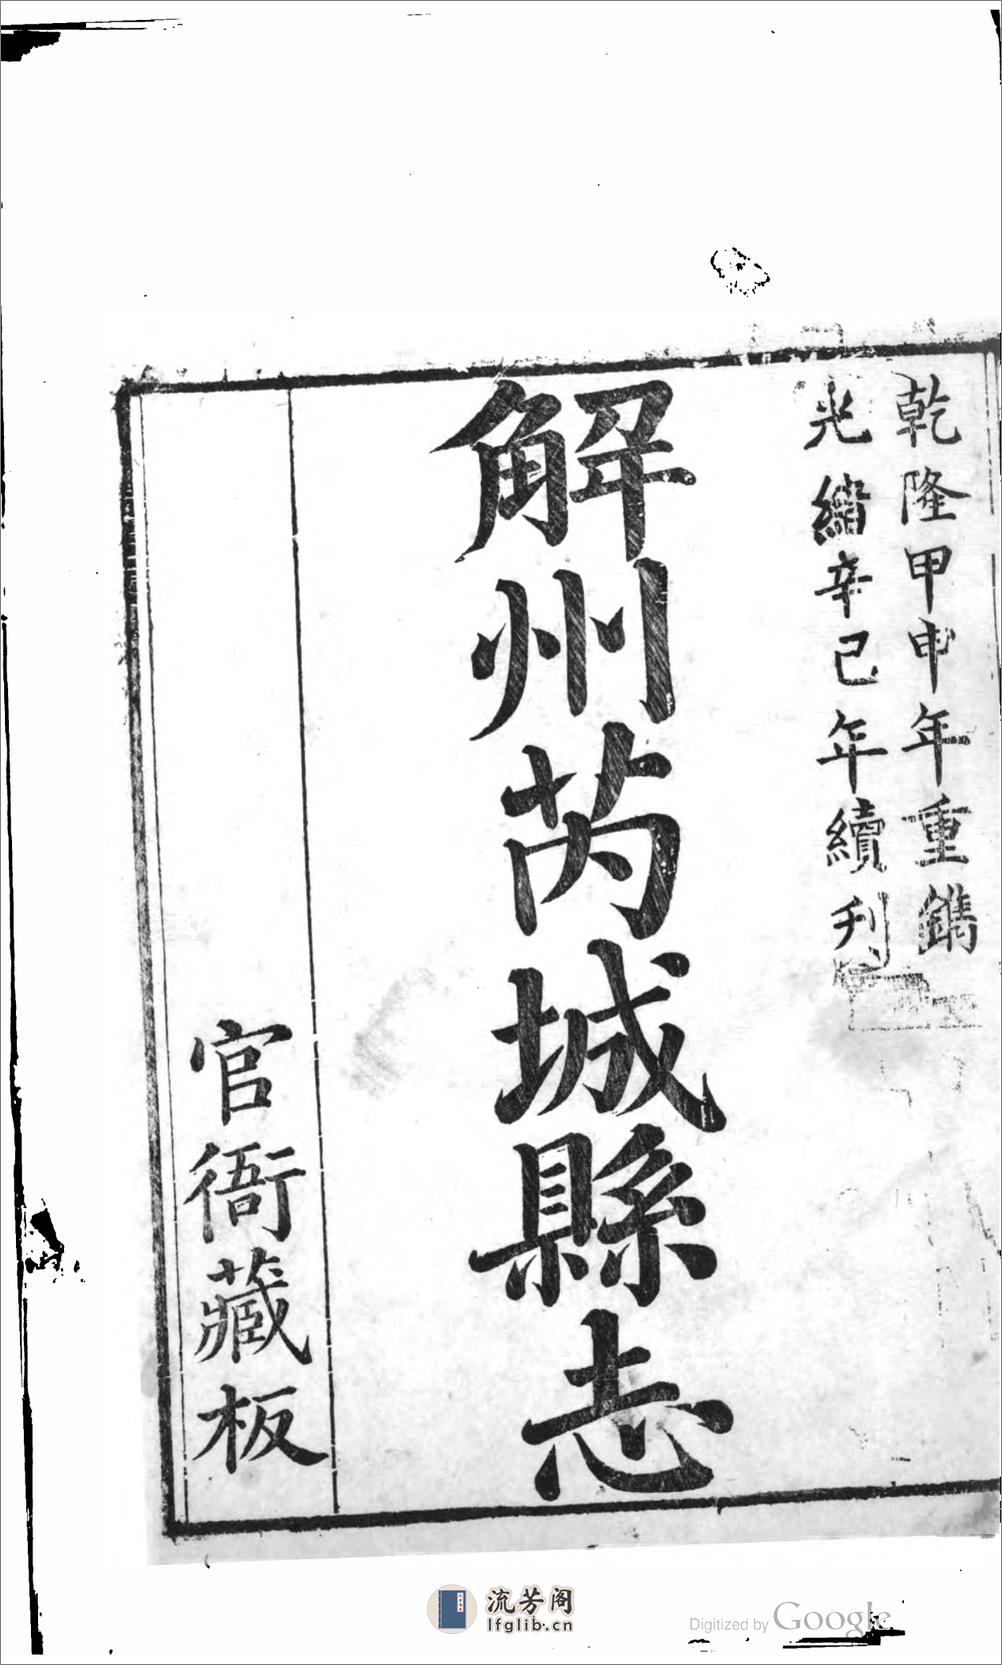 乾隆甲申年重鐫
光緒辛巳年續刋
解州芮城縣志
官衙藏板
流芳阁
lfglib.cn
Digitized by Google